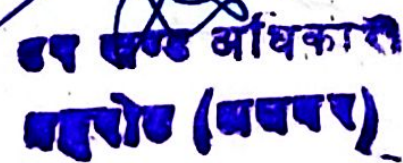 उप खण्ड अधिकारी
बहरोड (अलवर)